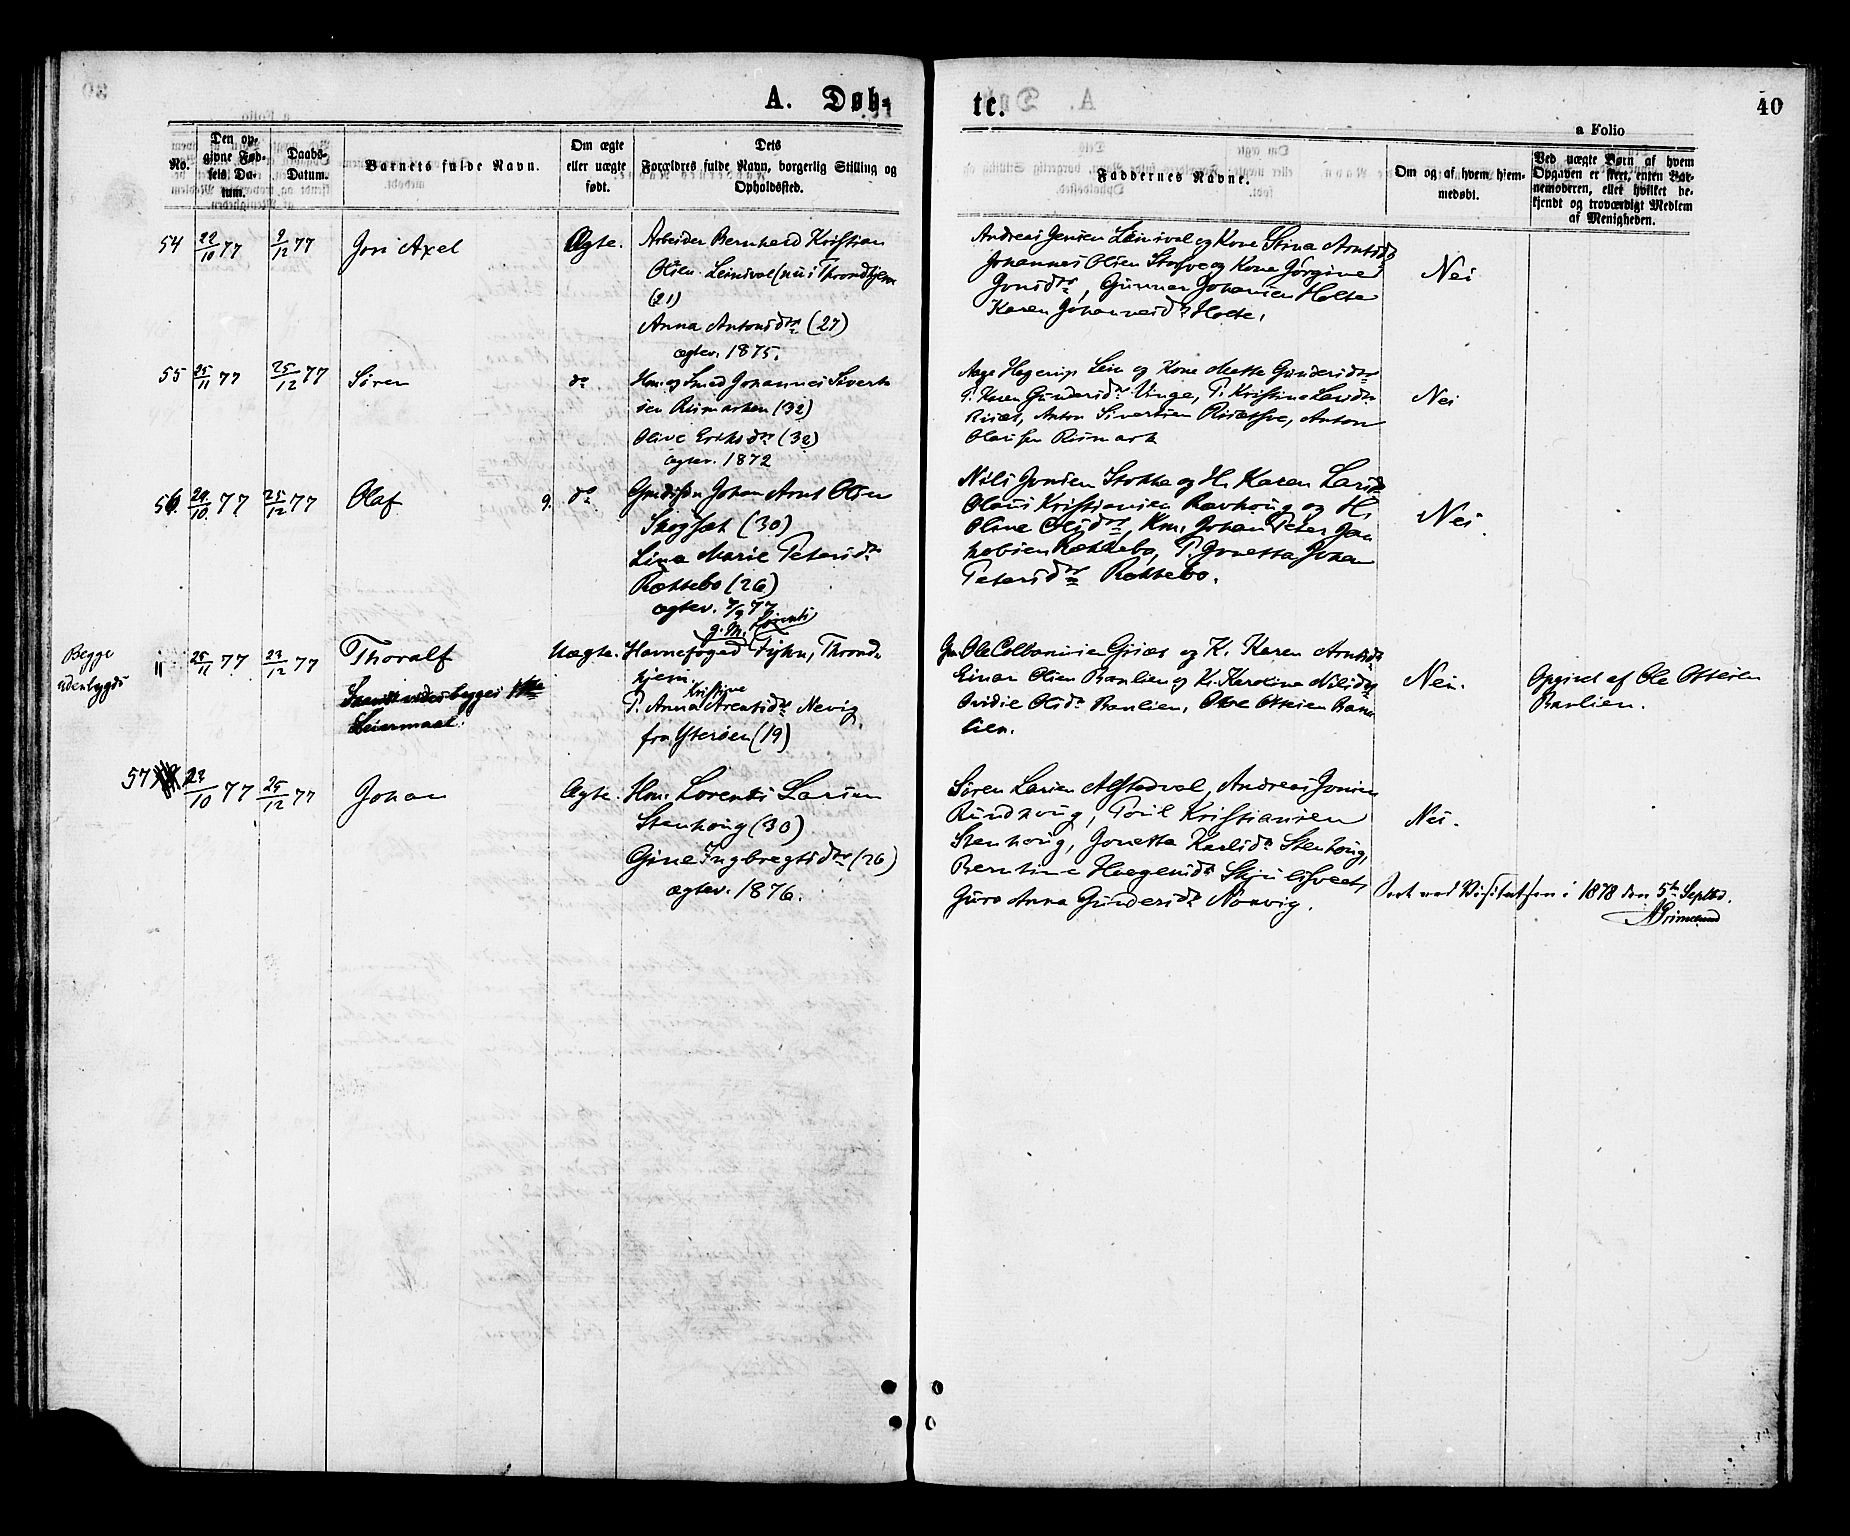 A. Døb-
te.
40
a Folio
No.
Den op-
givne Fød-
sels Da-
tum.
Daabs-
Datum.
Barnets fulde Navn.
Om ægte
eller uægte
født.
Dets
Forældres fulde Navn, borgerlig Stilling og
Opholdssted.
Faddernes Navne.
Om og af hvem hjem-
medøbt.
Ved uægte Børn af hvem
Opgaven er skeet, enten Bar-
nemoderen, eller hvilket be-
kjendt og troværdigt Medlem
af Menigheden.
54
22/10 77
9/12 77
Jon Axel
Ægte.
Arbeider Bernhard Kristian
Olsen Leinsval (nu i Throndhjem
(21)
Anna Antonsdtr (27)
ægtev. 1875.
Andreas Jensen Leinsval og Kone Stina Arntsdr
Johannes Olsen og Kone Jørgine
Jonsdtr, Gunnar Johansen Holte
Karen Johannesdr Holte.
Nei
55
25/11 77
25/12 77
Søren
do
Hm. og Smed Johannes Sivert-
sen Rismarken (32)
Olive Eriksdtr (32)
ægtev. 1872
Aage Hagerup Lein og Kone Mette Gundersdtr
P. Karen Gundersdr Vinge, P. Kristine Larsdr
Risæt, Anton Sivertsen, Anton
Olausen Rismark
Nei
56.
29/10. 77
25/12 77
Olaf
g.
do
Gmdssøn Johan Arnt Olsen
Skogsæt (30)
Lina Marie Petersdr
Røkkebo (26)
ægtev. 7/9 77
Nils Jonsen Stokke og H. Karen Larsdr
Olaus Kristiansen Ravhoug og H.
Oline Olsdtr, Km. Johan Peter Jan
kobsen Røkkebo, P. Jonetta Johan
Petersdtr Røkkebo.
Nei.
Begge
udenbygds
25/11 77
23/12 77
Thoralf
Leiermaal.
Uægte.
g. M.
Havnefoged Fyhn, Thrond-
hjem.
Kristine
P. Anna Arentsdr Nevig
fra Ytterøen (19)
Ole Colbansen Griæs og K. Karen Arntsdr
Einar Olsen Banlien og K. Karoline Nilsdr
Ovidie Olsdr Banlien, Ottesen Ban-
lien.
Nei.
Opgivet af Ole Ottesen
Banlien.
57
22/10 77
25/12 77
Johan
Ægte.
Hm. Lorents Larsen
Stenhoug (30)
Gine Ingbregtsdtr (26)
ægtev. 1876.
Søren Larsen Alstadval, Andreas Jonsen
Rundhoug, Poul Kristiansen
Stenhoug, Jonetta Karlsdr Stenhoug,
Berntine Haagensdr,
Guro Anna Gundersdr Norvig.
Nei.
Seet ved Visitatsen i 1878 den 5te Septbr.
AGrimelund